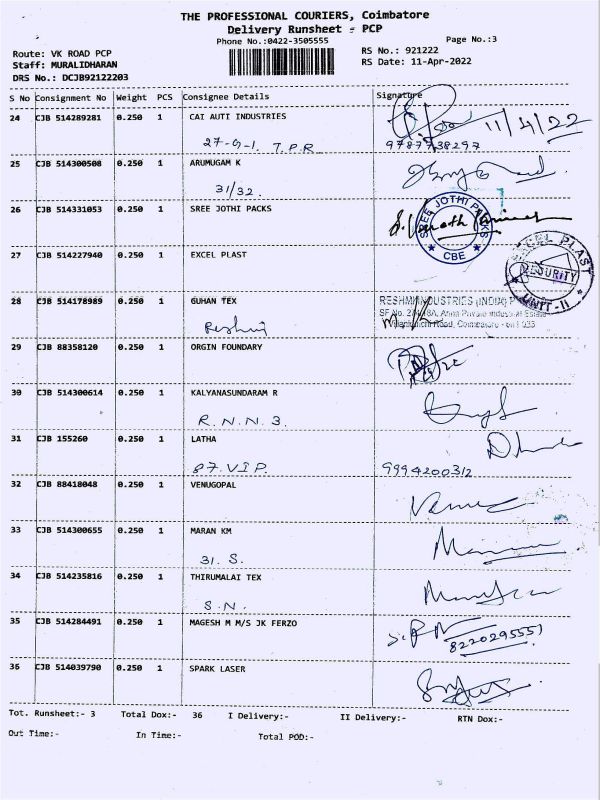 THE PROFESSIONAL COURIERS, Coimbatore
Delivery Runsheet - PCP
Phone No.:0422-3505555
Page No.:3
Route: VK ROAD PCP
RS No.: 921222
Staff: MURALIDHARAN
RS Date: 11-Apr-2022
DRS No.: DCJB92122203
S No Consignment No Weight PCS Consignee Details Signature
24 CJB 514289281 0.250 1 CAI AUTI INDUSTRIES
11/4/22
27-9-1. T.P.R 9787738297
25 CJB 514300508 0.250 1 ARUMUGAM K
31/32.
26 CJB 514331053 0.250 1 SREE JOTHI PACKS
SREE JOTHI PACKS
CBE
27 CJB 514227940 0.250 1 EXCEL PLAST
EXCEL PLAST
SECURITY
UNIT-II
28 CJB 514178989 0.250 1 GUHAN TEX
Reshmi
RESHMI INDUSTRIES (INDIA)
29 CJB 88358120 0.250 1 ORGIN FOUNDARY
30 CJB 514300614 0.250 1 KALYANASUNDARAM R
R.N.N 3.
31 CJB 155260 0.250 1 LATHA
87. V.I.P. 9994200312
32 CJB 88418048 0.250 1 VENUGOPAL
33 CJB 514300655 0.250 1 MARAN KM
31. S.
34 CJB 514235816 0.250 1 THIRUMALAI TEX
S.N.
35 CJB 514284491 0.250 1 MAGESH M M/S JK FERZO
8220295551
36 CJB 514039790 0.250 1 SPARK LASER
Tot. Runsheet:- 3 Total Dox:- 36 I Delivery:- II Delivery:- RTN Dox:-
Out Time:- In Time:- Total POD:-